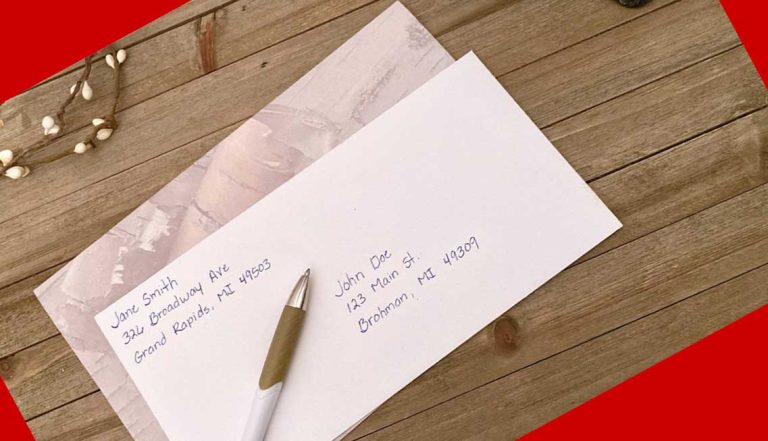 Jane Smith
326 Broadway Ave
Grand Rapids, MI 49503
John Doe
123 Main St.
Brohman, MI 49309